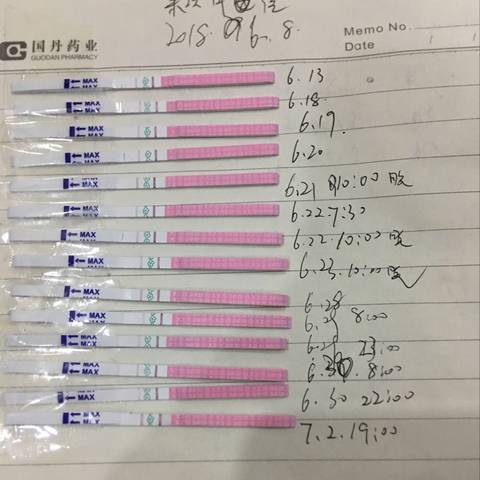 末次月经
2018.6.8.
国丹药业
GUODAN PHARMACY
Memo No.
Date / /
MAX 6.13
MAX 6.18.
MAX 6.19.
MAX 6.20
MAX 6.21 10:00
MAX 6.22.7:30
MAX 6.22.10:00
MAX 6.23.10:00
MAX 6.28
MAX 6.29 8:00
MAX 6.29 23:00
MAX 6.30. 8:00
MAX 6.30 22:00
MAX 7.2.19:00